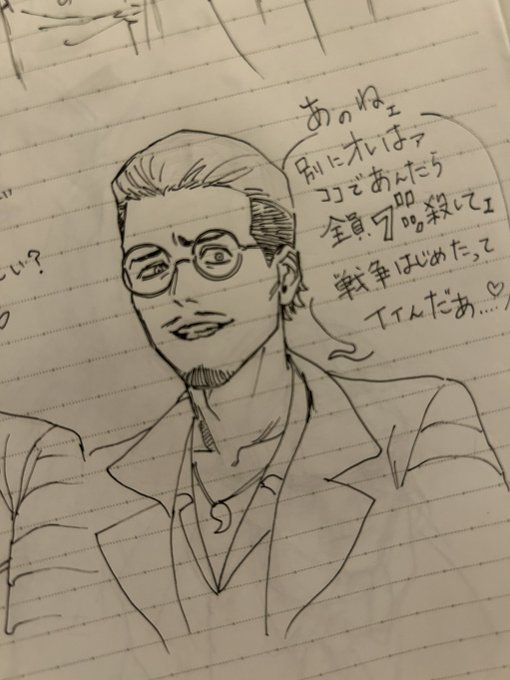 あのねェ
別にオレはァ
ココであんたら
全員ブチ殺してェ
戦争はじめたって
イイんだあ....♡
い?